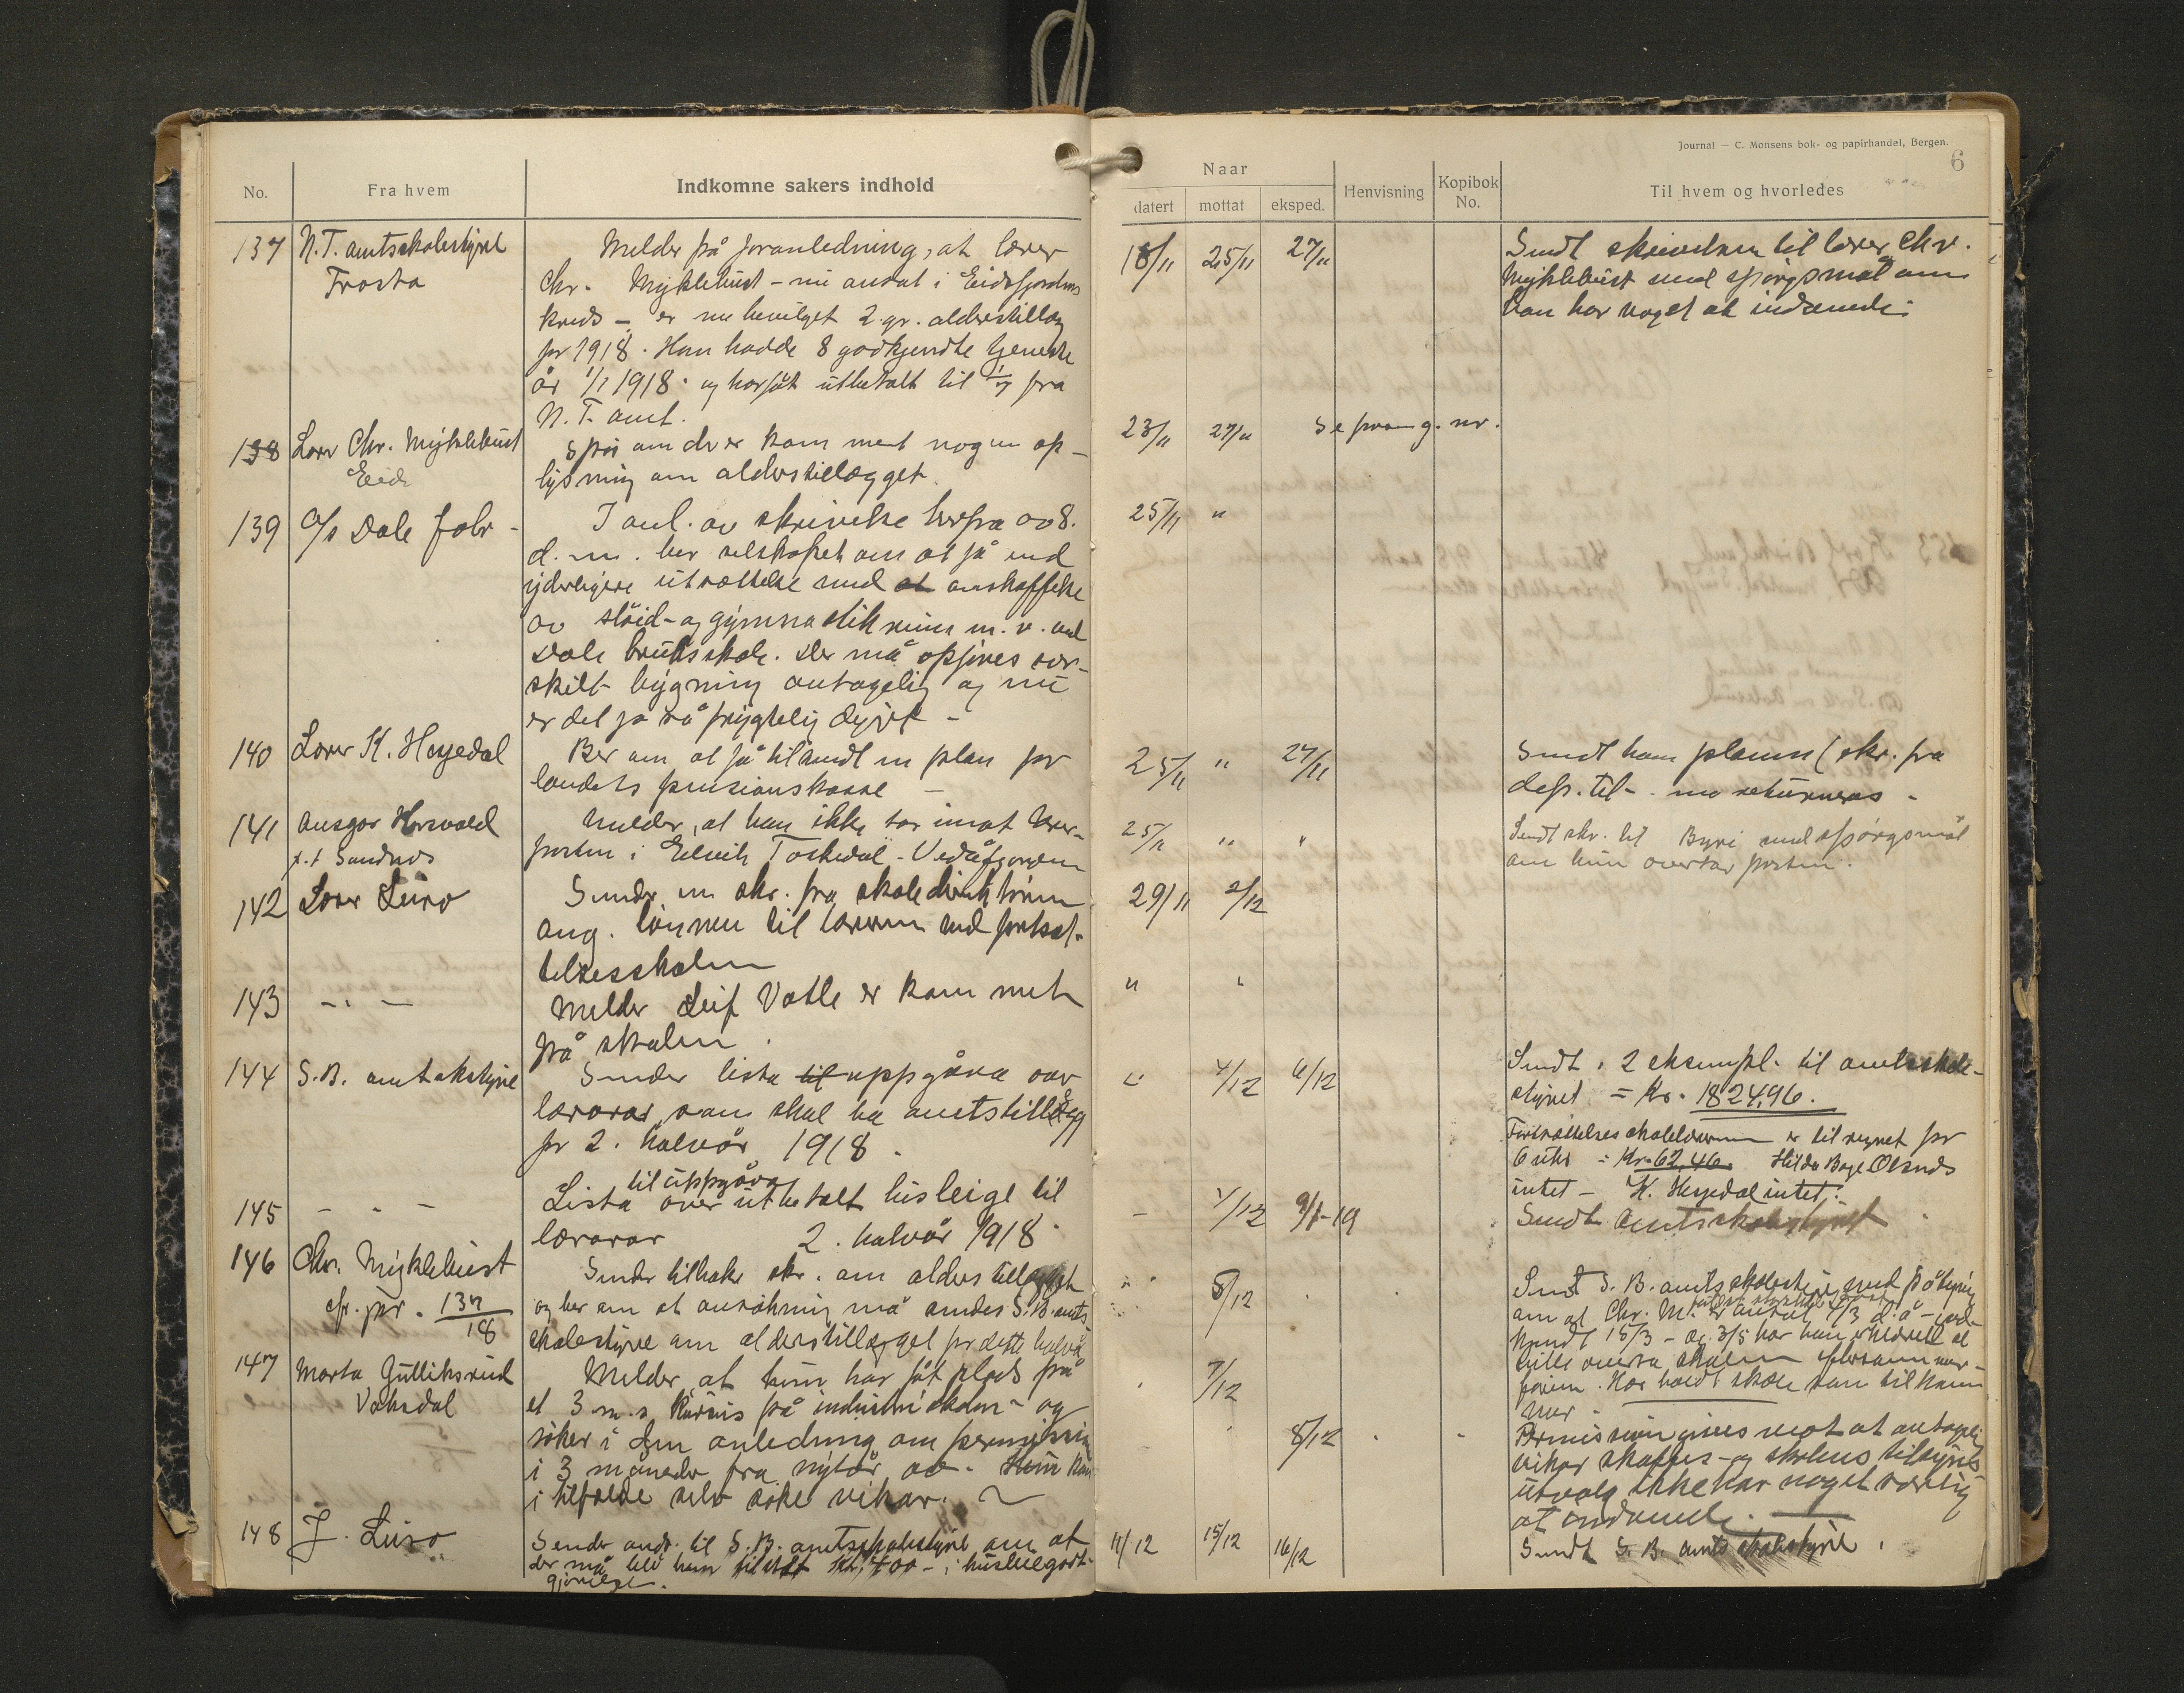 Journal — C. Monsens bok- og papirhandel, Bergen.
6
No.
Fra hvem
Indkomne sakers indhold
Naar
datert
mottat
eksped.
Henvisning
Kopibok No.
Til hvem og hvorledes
137 N.T. amtsskolestyret
Frosta
Melder på foranledning, at lærer
Chr. Myklebust - nu ansat i Eidsfjordens
kreds - er nu bevilget 2. gr. alderstillæg
for 1918. Han hadde 8 godkjendte tjeneste
år 1/1 1918. og har fåt utbetalt til 1/7 fra
N.T. amt.
18/11 25/11 27/11
Sendt skrivelsen til lærer Chr.
Myklebust med spörgsmål om
han har noget at indvende.
138 Lærer Chr. Myklebust
Eide
Spör om der er kommet nogen op-
lysning om alderstillægget.
23/11 27/11 Se foreg. nr.
139 A/s Dale fabr-
I anl. av skrivelse herfra av 8.
d.m. ber selskapet om at få med
yderligere utsættelse med at anskaffelse
av slöid- og gymnastikrum m.v. ved
Dale bruksskole. Der må opföres sær-
skilt bygning antagelig og nu
er det jo så frygtelig dyrt -
25/11 "
140 Lærer K. Hesjedal
Ber om at få tilsendt en plan for
landets pensionskasse -
25/11 " 27/11
Sendt ham planen (skr. fra
dep. til - . må returneres -
141 Ansgar Horvald
p.t. Sandnes
Melder, at han ikke tar imot lærer-
posten i Eidvik Toskedal - Vedåfjorden
25/11 " "
Sendt skr. til Byri med spörgsmål
om hun overtar posten.
142 Lærer Luro
Sender en skr. fra skoledirektören
ang. lönnen til læreren ved fortsæt-
telsesskolen
29/11 2/12
143 - " -
Melder Leif Vatle er kommet
på skolen.
" "
144 S.B. amtskstyre
Sender lista til uppgåva over
lærarar, som skal ha amtstillegg
for 2. halvår 1918.
" 4/12 6/12
Sendt i 2 eksempl. til amtsskole-
styret = Kr. 1824,96.
Fortsættelsesskolelæreren er tilregnet for
6 uker = Kr. 62,46. Hilda Boge Olsnes
intet - K. Hesjedal intet.
145 - " -
til uppgåva
Lista over utbetalt husleige til
lærarar 2. halvår 1918.
- 4/12 9/1-19
Sendt Amtsskolestyret
146 Chr. Myklebust
cfr. jnr. 137/18
Sender tilbake skr. om alderstillægget
og ber om at ansökning må sendes S.B. amts-
skolestyre om alderstillægget for dette halvår
" 5/12 "
Sendt S.B. amtsskolestyre med påtegning
om at Chr. M. er ansat 4/3 d.å - ind-
147 Marta Gulliksrud
Vaksdal
Melder, at hun har fåt plads på
et 3 m.s kursus på industriskolen - og
söker i den anledning om permission
i 3 måneder fra nytår av. Hun kan
i tilfælde selv söke vikar.
" 7/12
8/12
Permission gives mot at antagelig
vikar skaffes - og skolens tilsyns-
utvalg ikke har noget særlig
at indvende.
148 J. Luro
Sender ands. til S.B. amtsskolestyre om at
der må bli ham tilstått Kr. 400 - i husleiegodt-
gjörelse.
11/12 15/12 16/12
Sendt S.B. amtsskolestyre.